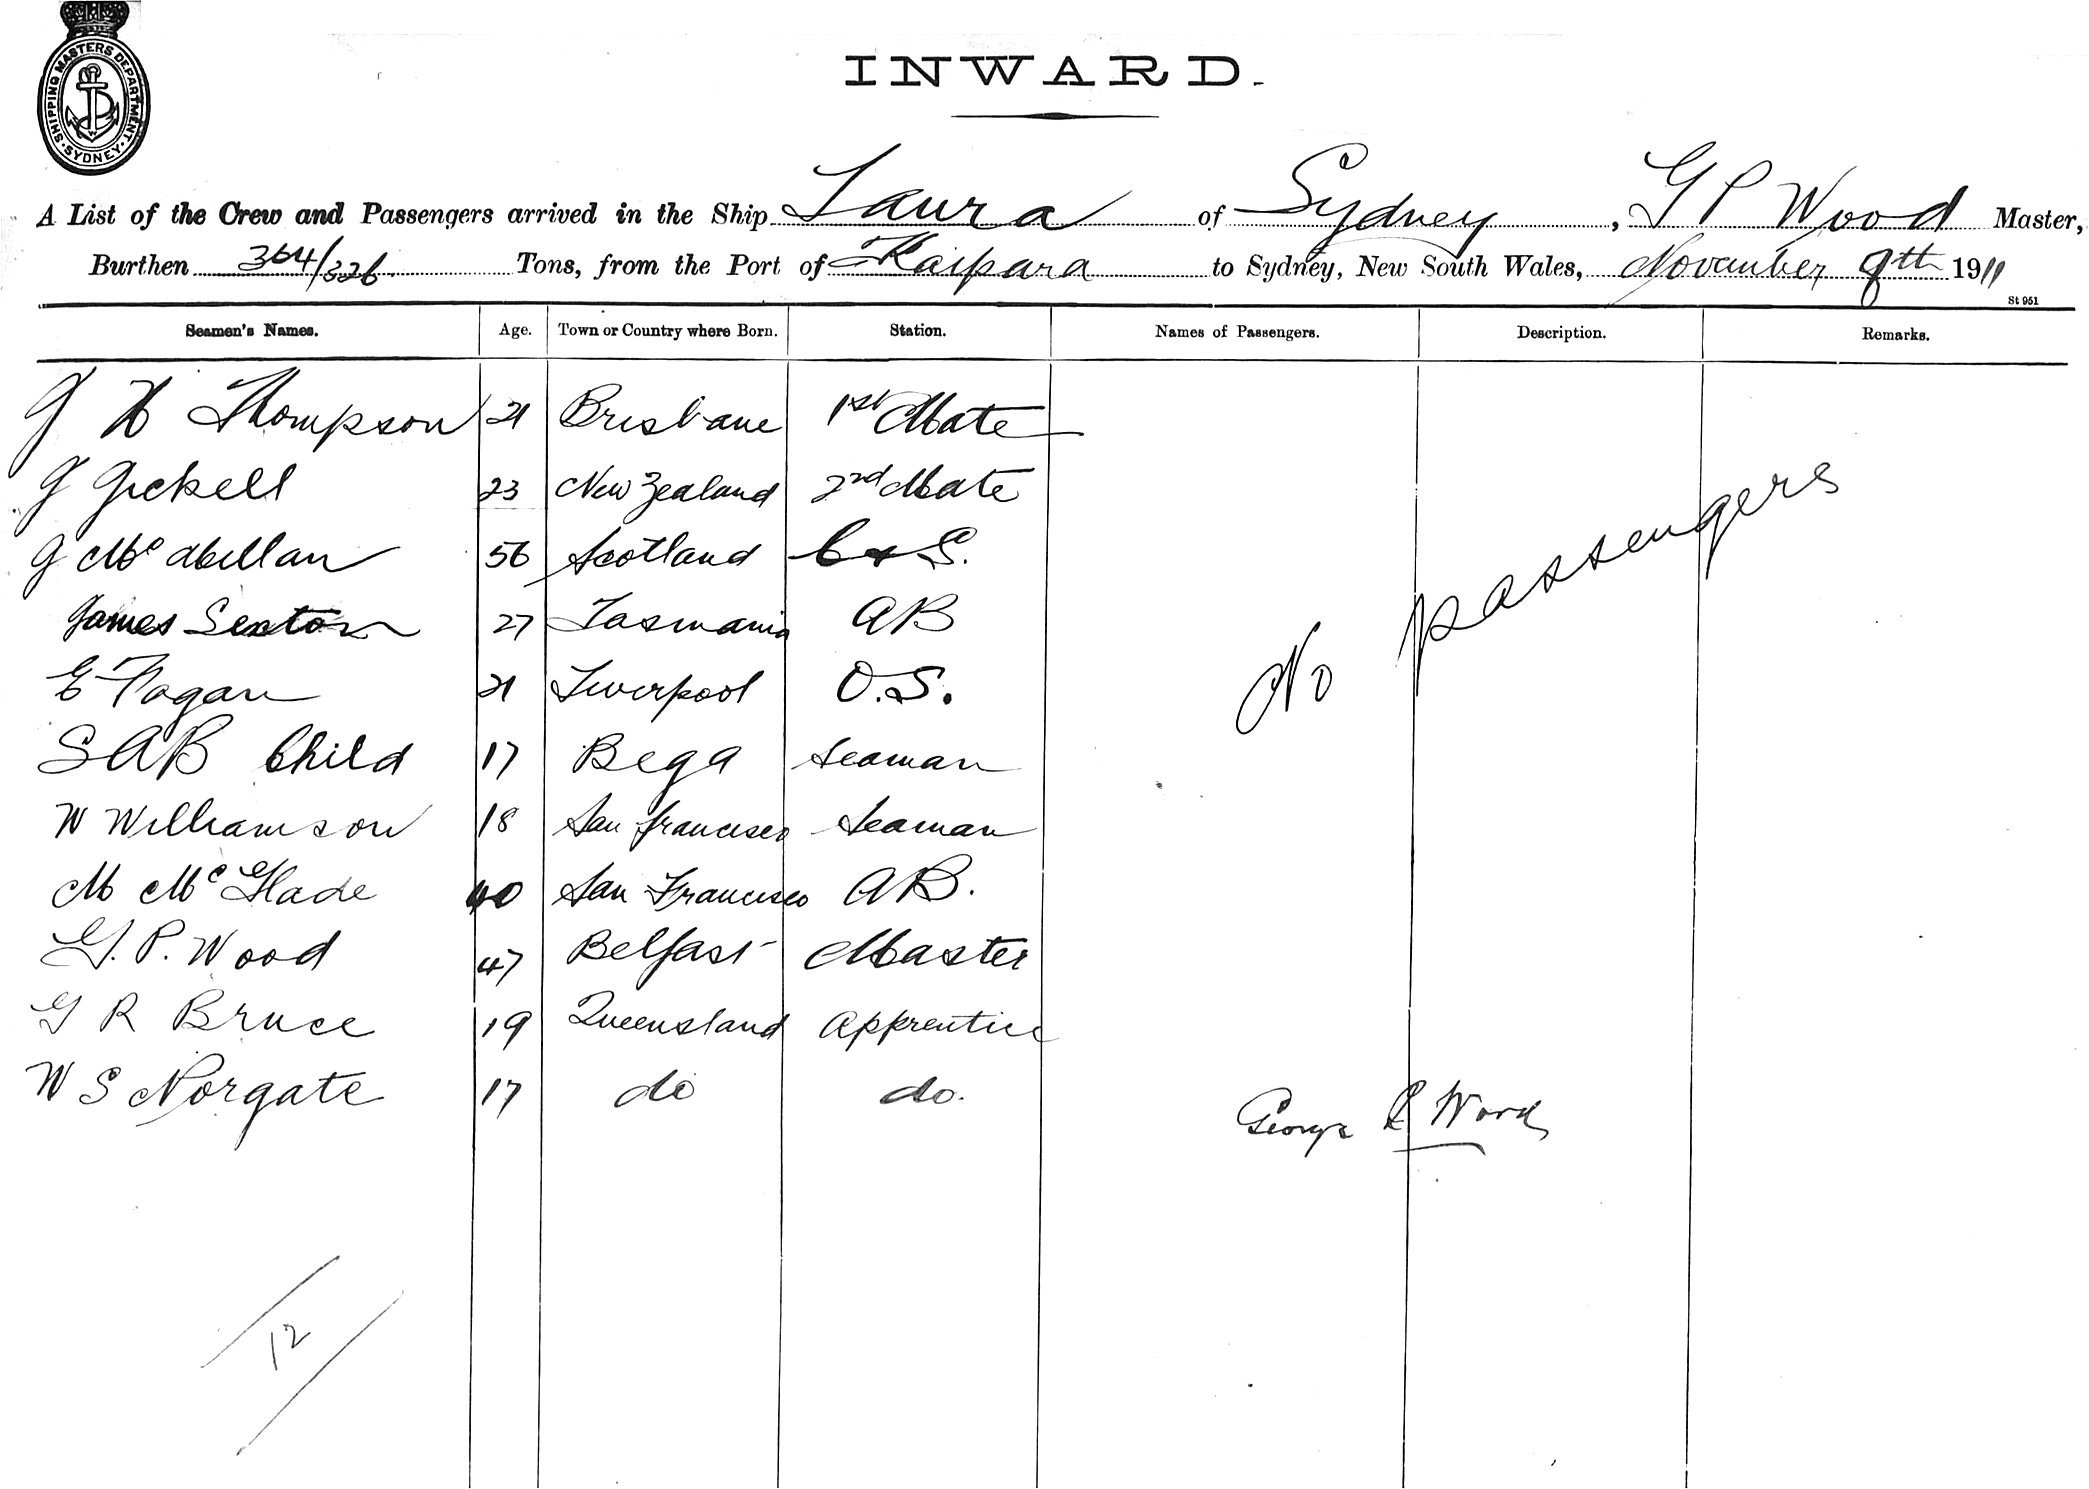 SHIPPING MASTERS DEPARTMENT · SYDNEY ·
INWARD.
A List of the Crew and Passengers arrived in the Ship Laura of Sydney, G P Wood Master,
Burthen 364/326 Tons, from the Port of Kaipara to Sydney, New South Wales, November 9th 1911
St 951
Seamen's Names. Age. Town or Country where Born. Station. Names of Passengers. Description. Remarks.
J H Thompson 21 Brisbane 1st Mate
J 23 New Zealand 2nd Mate
J McMillan 56 Scotland C & S.
James Sexton 27 Tasmania AB
E Fagan 21 Liverpool O.S.
No passengers
SAB Child 17 Bega Seaman
W Williamson 18 San francisco Seaman
M McGlade 40 San Francisco AB.
G. P. Wood 47 Belfast Master
G R Bruce 19 Queensland Apprentice
W S Norgate 17 do do.
George P Wood
12